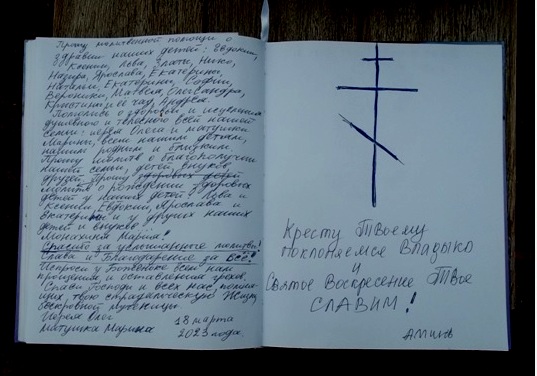 Прошу молитвенной помощи о
здравии наших детей: Евдокии,
Ксении, Лева, Златы, Нино,
Назара, Ярослава, Екатерины,
Наталии, Екатерины, Софии,
Вероники, Матвея, Олександра,
Кристины и её чад, Андрея.
Помолись о здоровьи и исцелении
душевно и телесно всей нашей
семьи: иерея Олега и матушки
Марины, всем нашим детям,
нашим родным и близким.
Прошу молитв о благополучии
нашей семьи, детей, внуков
друзей. Прошу здоровых детей
молитв о рождении здоровых
детей у наших детей Лева и
Ксении, Евдокии, Ярослава и
Екатерины и у других наших
детей и внуков.
Монахиня Мария!
Спасибо за услышанные молитвы!
Слава и Благодарение за Всё!
Испроси у Бога всем нам
прощения и оставления грехов.
Спаси Господи и всех нас,
твою страдальческую Жизнь
Иерей Олег
матушка Марина
18 марта
2023 года.
Кресту Твоему
поклоняемся Владыко
и
Святое Воскресение Твое
СЛАВИМ!
Аминь